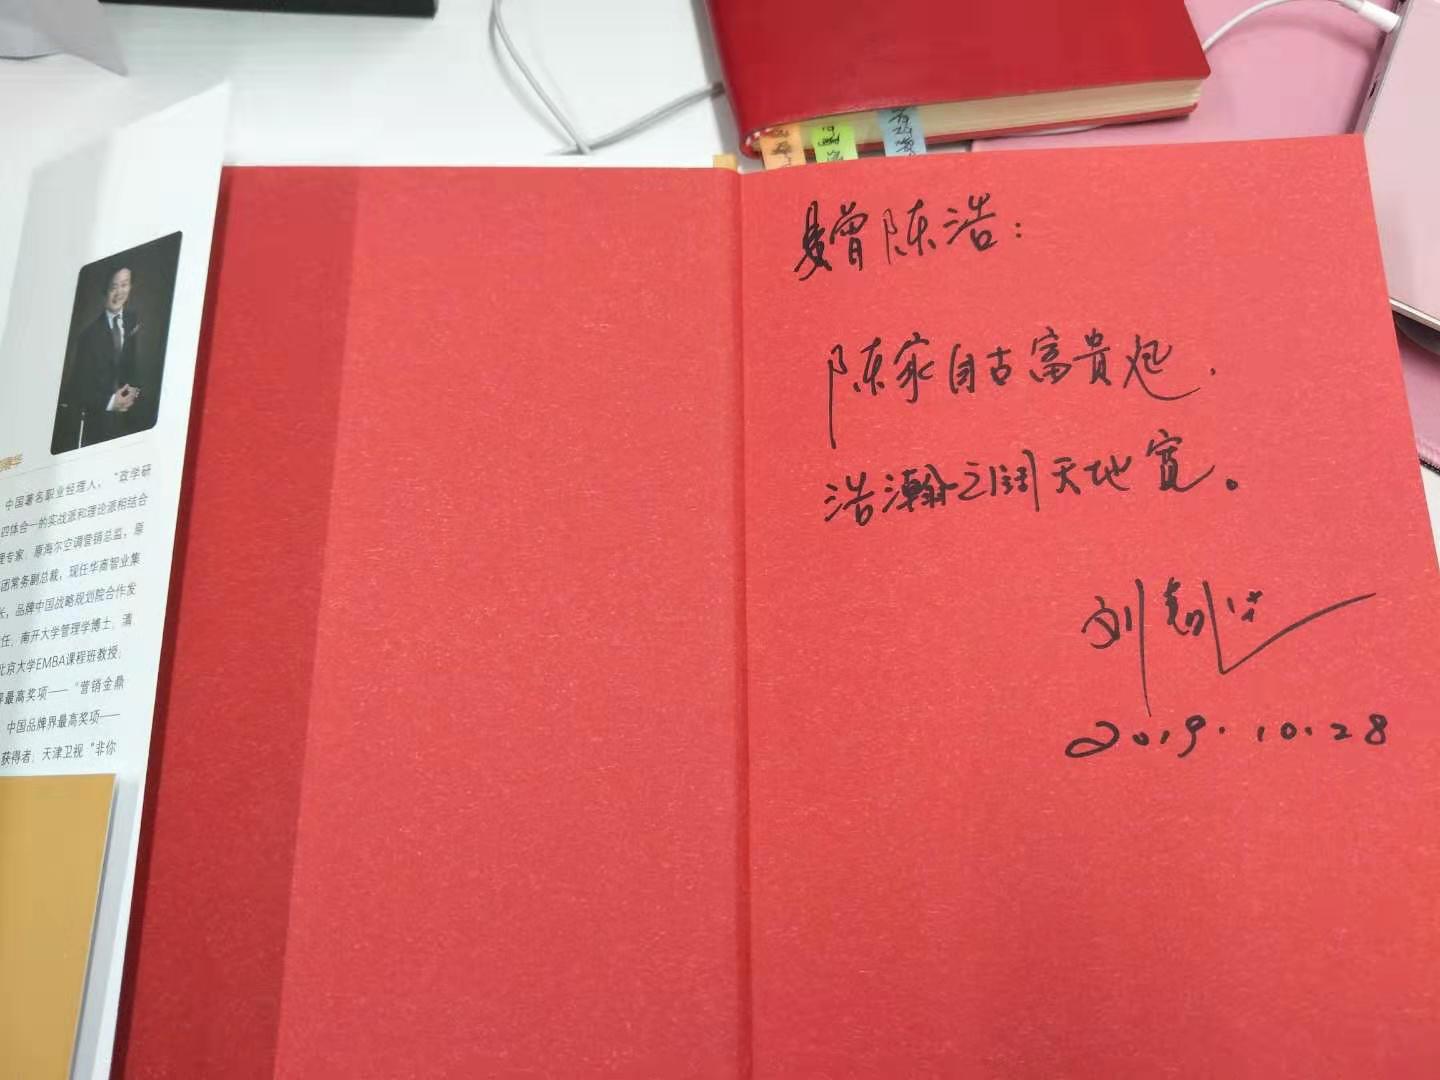 中国著名职业经理人，“政学研
四体合一的实战派和理论派相结合
理专家，原海尔空调营销总监，原
团常务副总裁，现任华商智业集
长，品牌中国战略规划院合作发
任，南开大学管理学博士，清
北京大学EMBA课程班教授，
界最高奖项——“营销金鼎
中国品牌界最高奖项——
获得者，天津卫视“非你
赠陈浩：
陈家自古富贵炮，
浩瀚之阔天地宽。
2019.10.28